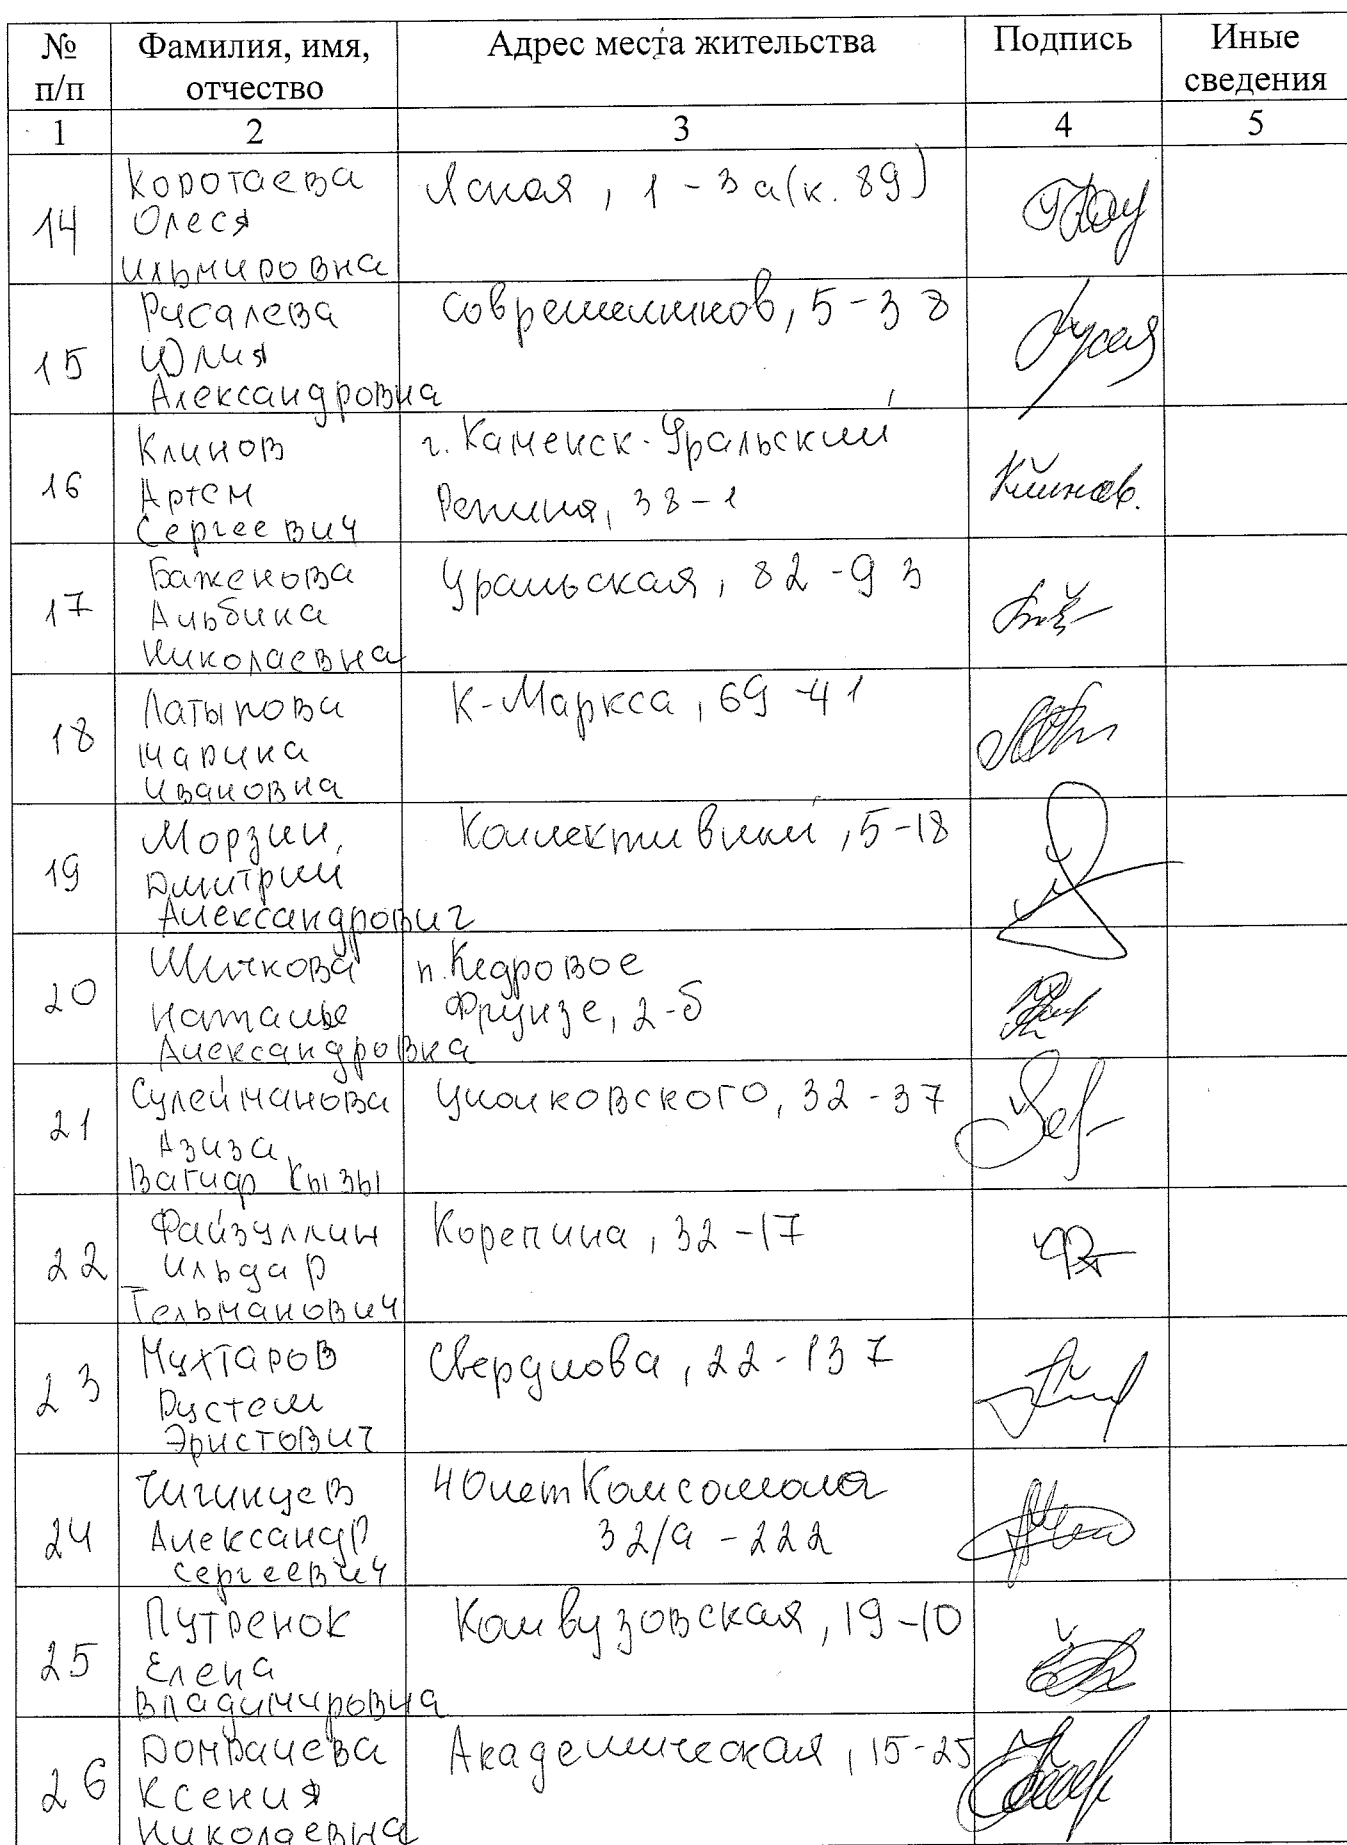 № п/п Фамилия, имя, отчество Адрес места жительства Подпись Иные сведения
1 2 3 4 5
14 Коротаева Олеся Ильмировна Ясная, 1-3а(к. 89)
15 Русалева Юлия Александровна Современников, 5-38
16 Клинов Артем Сергеевич г. Каменск-Уральский Репина, 38-1 Клинов.
17 Баженова Альбина Николаевна Уральская, 82-93
18 Латыпова Марина Ивановна К-Маркса, 69-41
19 Морзин Дмитрий Александрович Коллективный, 5-18
20 Шичкова Наталья Александровна п. Кедровое Фрунзе, 2-5
21 Сулейманова Азиза Вагиф Кызы Циолковского, 32-37
22 Файзуллин Ильдар Тельманович Корепина, 32-17
23 Мухтаров Рустем Эристович Свердлова, 22-137
24 Чигинцев Александр Сергеевич 40 лет Комсомола 32/а-222
25 Путренок Елена Владимировна Комвузовская, 19-10
26 Домрачева Ксения Николаевна Академическая, 15-25